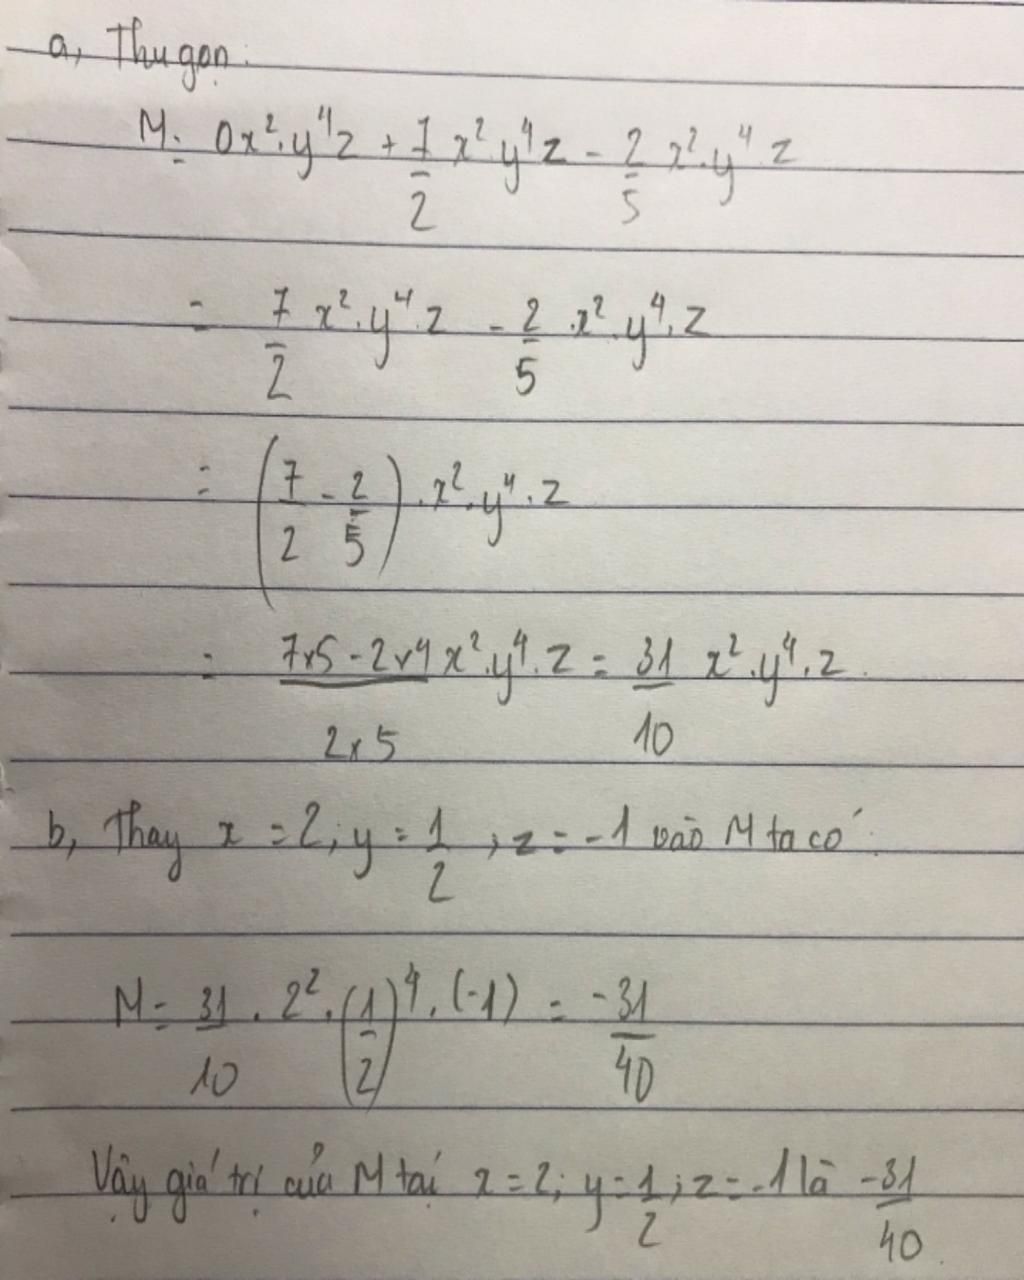 a, Thu gọn:
M = 0x².y⁴z + 7/2 x².y⁴z - 2/5 x².y⁴.z
= 7/2 x².y⁴.z - 2/5 .x².y⁴.z
= (7/2 - 2/5).x².y⁴.z
= 7x5-2x4/2x5 x².y⁴.z = 31/10 x².y⁴.z.
b, Thay x = 2; y = 1/2; z = -1 vào M ta có:
M = 31/10 . 2² . (1/2)⁴ . (-1) = -31/40
Vậy giá trị của M tại x = 2; y = 1/2; z = -1 là -31/40.